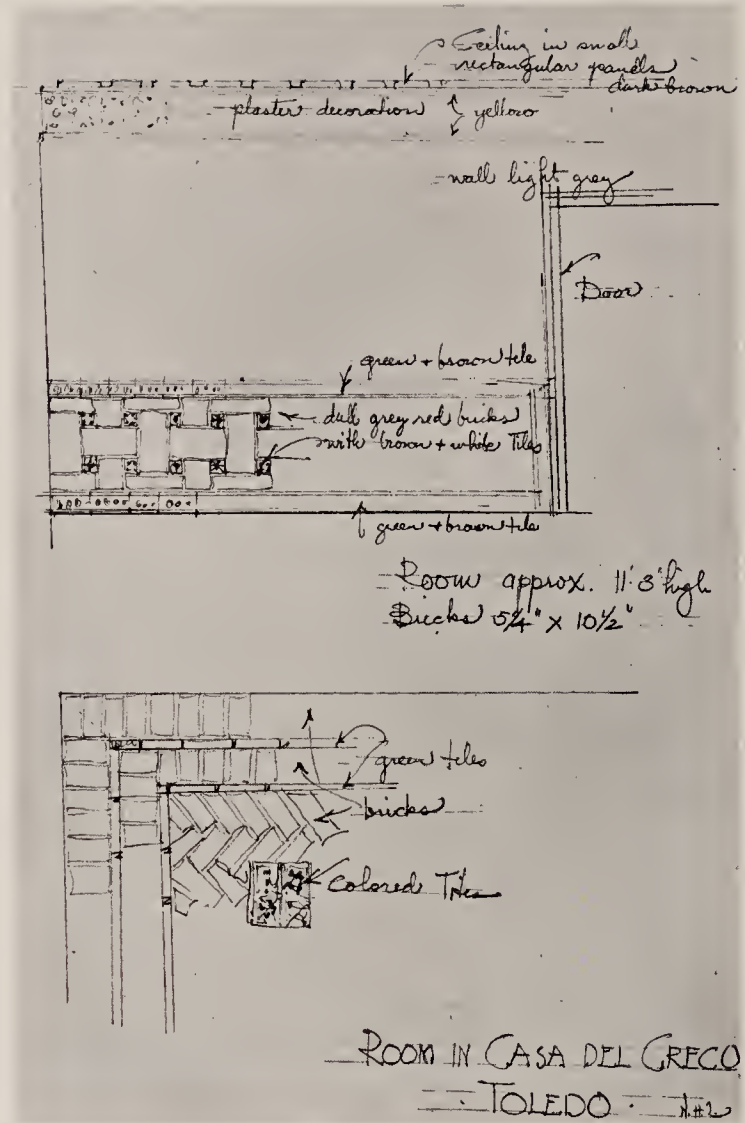 Ceiling in small
rectangular panels
dark brown
plaster decoration yellow
wall light grey
Door
green + brown tile
dull grey red bricks
with brown + white Tiles
green + brown tile
Room approx. 11'3" high
Bricks 5¼" X 10½"
green tiles
bricks
Colored Tiles
ROOM IN CASA DEL GRECO
TOLEDO